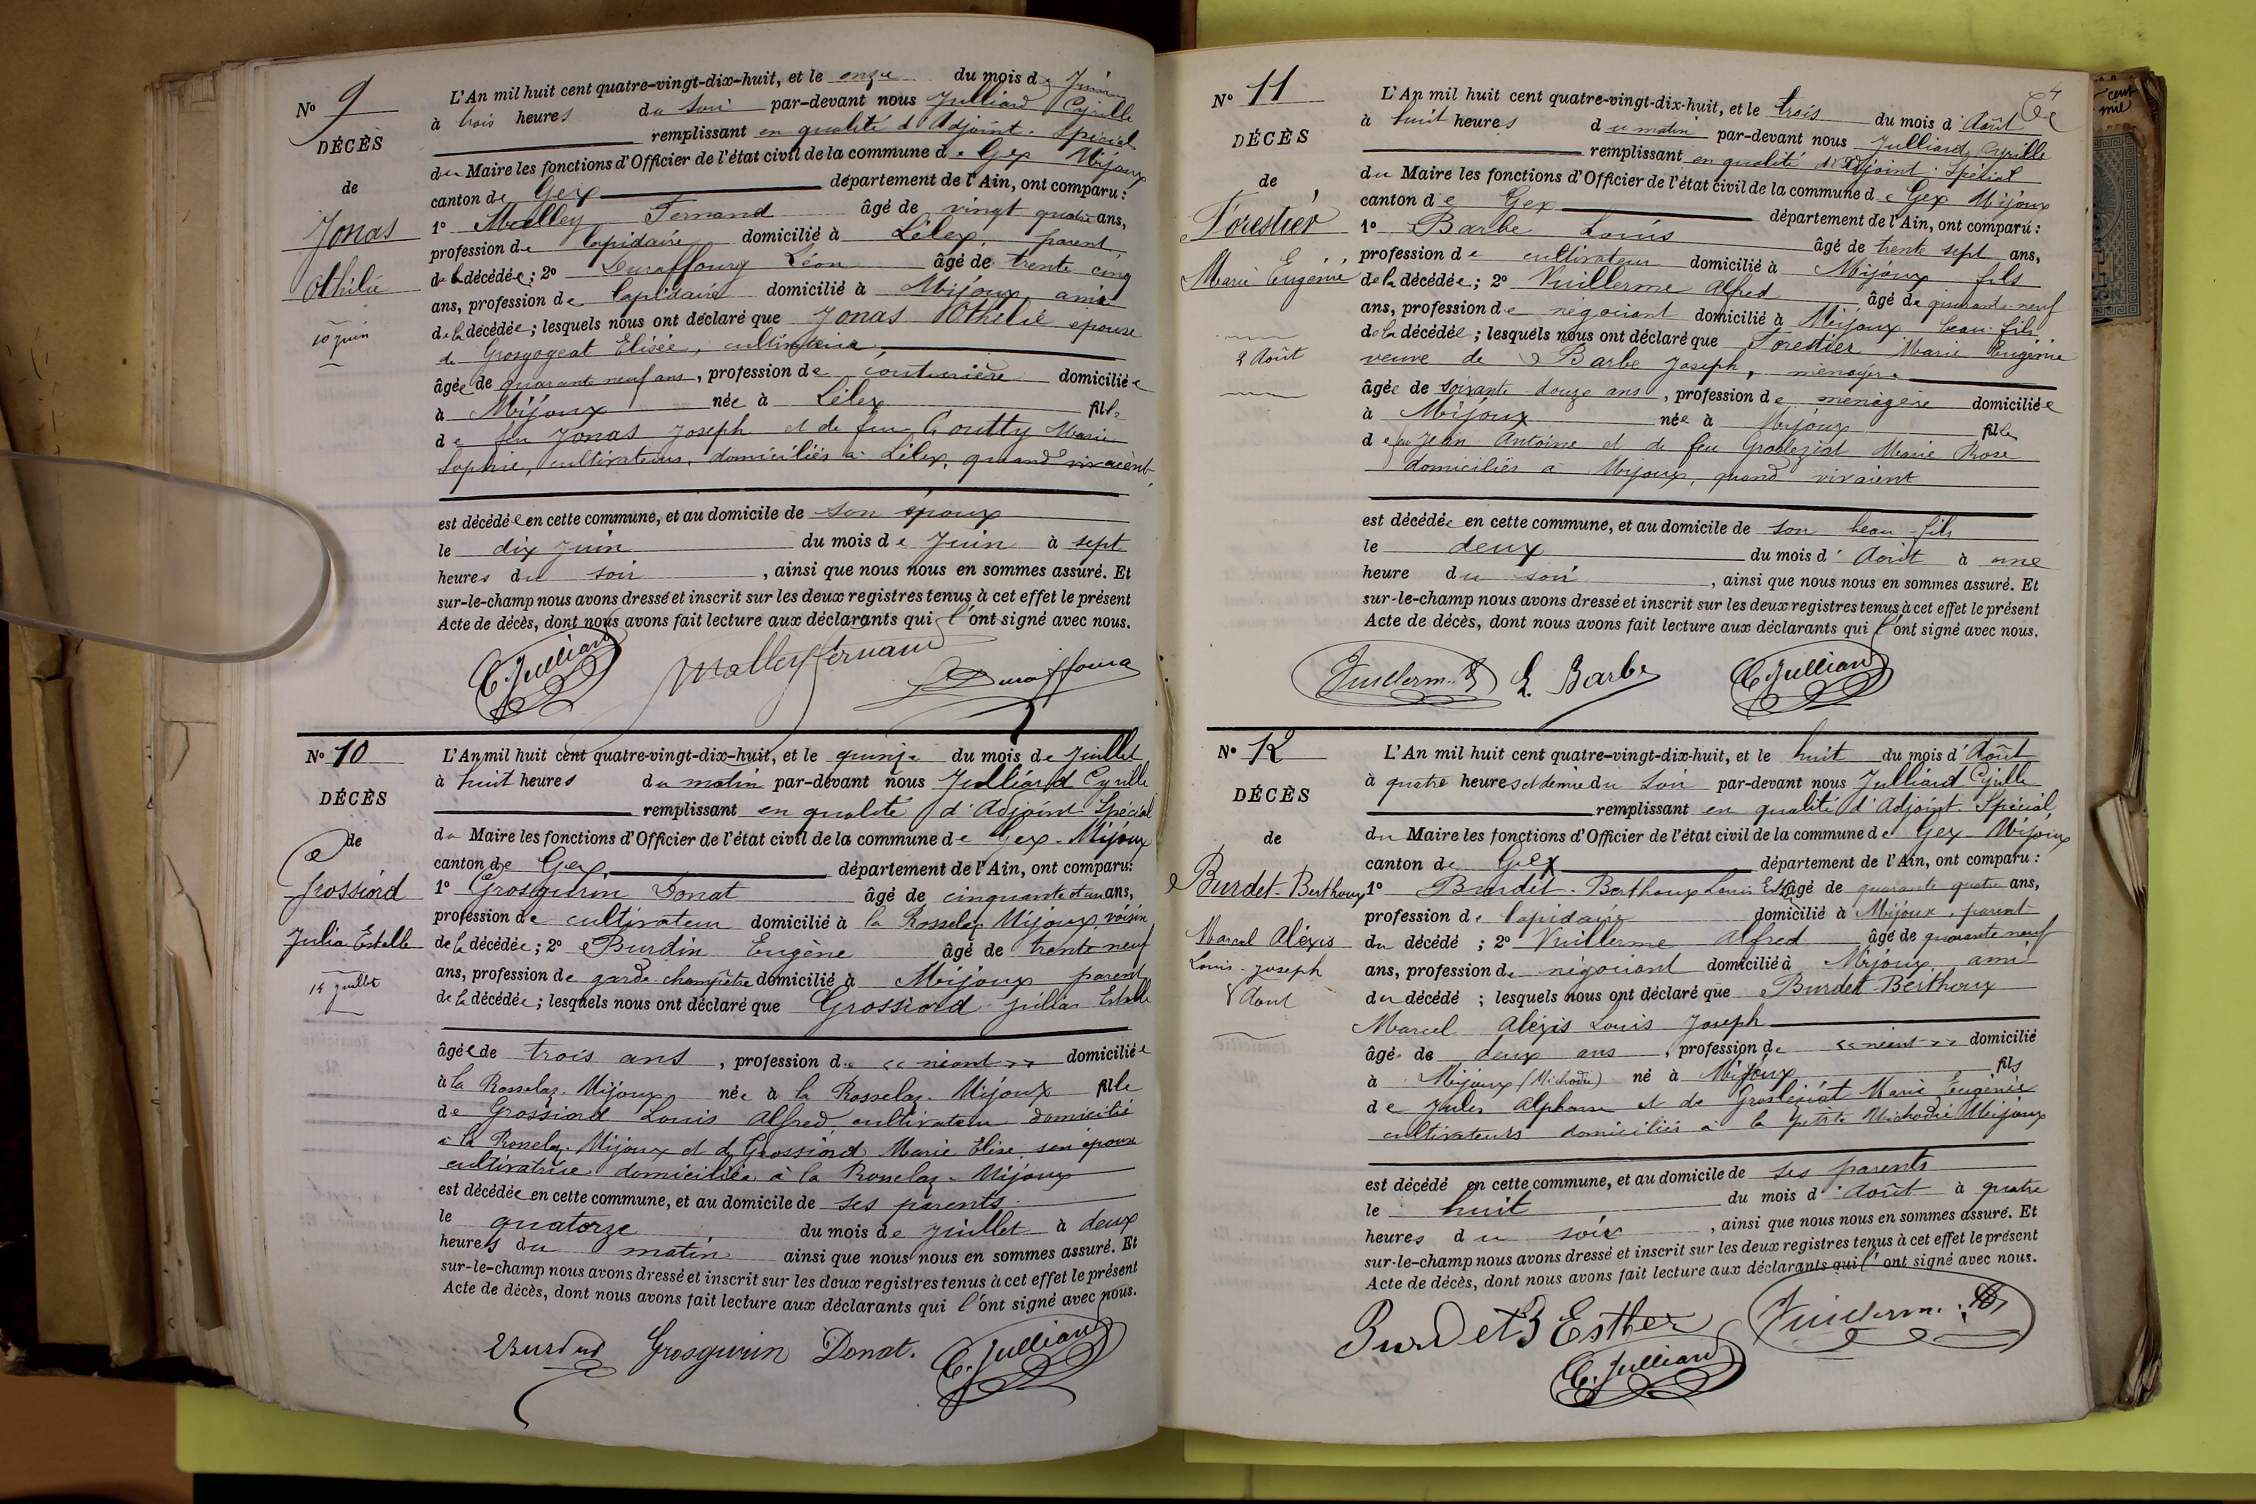 N° 9
DÉCÈS
de
Jonas
Othilie
10 juin
L'An mil huit cent quatre-vingt-dix-huit, et le onze du mois de Juin
à trois heures du soir par-devant nous Julliard Cyrille
remplissant en qualité d'Adjoint-Spécial
du Maire les fonctions d'Officier de l'état civil de la commune de Gex Mijoux
canton de Gex département de l'Ain, ont comparu :
1° Malley Fernand âgé de vingt quatre ans,
profession de lapidaire domicilié à Lélex, parent
de la décédée ; 2° Duraffourg Léon âgé de trente cinq
ans, profession de lapidaire domicilié à Mijoux ami
de la décédée ; lesquels nous ont déclaré que Jonas Othilie épouse
de Grosgogeat Elisée, cultivateur
âgée de quarante neuf ans, profession de couturière domiciliée
à Mijoux née à Lélex fille
de feu Jonas Joseph et de feu Goutty Marie
Sophie, cultivateurs, domiciliés à Lélex, quand vivaient
est décédée en cette commune, et au domicile de son époux
le dix juin du mois de Juin à sept
heures du soir, ainsi que nous nous en sommes assuré. Et
sur-le-champ nous avons dressé et inscrit sur les deux registres tenus à cet effet le présent
Acte de décès, dont nous avons fait lecture aux déclarants qui l'ont signé avec nous.
C. Julliard Malley Fernand L Duraffourg
N° 10
DÉCÈS
de
Grossiord
Julia Estelle
14 juillet
L'An mil huit cent quatre-vingt-dix-huit, et le quinze du mois de Juillet
à huit heures du matin par-devant nous Julliard Cyrille
remplissant en qualité d'Adjoint-Spécial
du Maire les fonctions d'Officier de l'état civil de la commune de Gex-Mijoux
canton de Gex département de l'Ain, ont comparu :
1° Grosgurin Donat âgé de cinquante et un ans,
profession de cultivateur domicilié à la Rosselaz Mijoux, voisin
de la décédée ; 2° Burdin Eugène âgé de trente neuf
ans, profession de garde-champêtre domicilié à Mijoux parent
de la décédée ; lesquels nous ont déclaré que Grossiord Julia Estelle
âgée de trois ans, profession de « néant » domiciliée
à la Rosselaz-Mijoux née à la Rosselaz-Mijoux fille
de Grossiord Louis Alfred cultivateur domicilié
à la Rosselaz-Mijoux et de Grossiord Marie Elise, son épouse
cultivatrice domiciliée à la Rosselaz-Mijoux
est décédée en cette commune, et au domicile de ses parents
le quatorze du mois de Juillet à deux
heures du matin ainsi que nous nous en sommes assuré. Et
sur-le-champ nous avons dressé et inscrit sur les deux registres tenus à cet effet le présent
Acte de décès, dont nous avons fait lecture aux déclarants qui l'ont signé avec nous.
Burdin Grosgurin Donat. C. Julliard
64
N° 11
DÉCÈS
de
Forestier
Marie Eugénie
2 Août
L'An mil huit cent quatre-vingt-dix-huit, et le trois du mois d'Août
à huit heures du matin par-devant nous Julliard Cyrille
remplissant en qualité d'Adjoint-Spécial
du Maire les fonctions d'Officier de l'état civil de la commune de Gex Mijoux
canton de Gex département de l'Ain, ont comparu :
1° Barbe Louis âgé de trente sept ans,
profession de cultivateur domicilié à Mijoux fils
de la décédée ; 2° Vuillerme Alfred âgé de quarante-neuf
ans, profession de négociant domicilié à Mijoux beau-fils
de la décédée ; lesquels nous ont déclaré que Forestier Marie Eugénie
veuve de Barbe Joseph, ménagère
âgée de soixante douze ans, profession de ménagère domiciliée
à Mijoux née à Mijoux fille
de feu Jean Antoine et de feu Grosléziat Marie Rose
domiciliés à Mijoux, quand vivaient
est décédée en cette commune, et au domicile de son beau-fils
le deux du mois d'Août à une
heure du soir, ainsi que nous nous en sommes assuré. Et
sur-le-champ nous avons dressé et inscrit sur les deux registres tenus à cet effet le présent
Acte de décès, dont nous avons fait lecture aux déclarants qui l'ont signé avec nous.
Vuillerm. A L. Barbe C. Julliard
N° 12
DÉCÈS
de
Burdet-Berthoux
Marcel Aléxis
Louis-Joseph
8 Aout
L'An mil huit cent quatre-vingt-dix-huit, et le huit du mois d'Août
à quatre heures et demie du soir par-devant nous Julliard Cyrille
remplissant en qualité d'Adjoint-Spécial
du Maire les fonctions d'Officier de l'état civil de la commune de Gex-Mijoux
canton de Gex département de l'Ain, ont comparu :
1° Burdet-Berthoux Louis Esther âgé de quarante quatre ans,
profession de lapidaire domicilié à Mijoux, parent
du décédé ; 2° Vuillerme Alfred âgé de quarante neuf
ans, profession de négociant domicilié à Mijoux ami
du décédé ; lesquels nous ont déclaré que Burdet Berthoux
Marcel Aléxis Louis Joseph
âgé de deux ans, profession de « néant » domicilié
à Mijoux (Michodie) né à Mijoux fils
de Jules Alphonse et de Grosléziat Marie Eugénie
cultivateurs domiciliés à la petite Michodie Mijoux
est décédé en cette commune, et au domicile de ses parents
le huit du mois d'Août à quatre
heures du soir, ainsi que nous nous en sommes assuré. Et
sur-le-champ nous avons dressé et inscrit sur les deux registres tenus à cet effet le présent
Acte de décès, dont nous avons fait lecture aux déclarants qui l'ont signé avec nous.
Burdet B Esther Vuillerm. A
C. Julliard
cent
mil